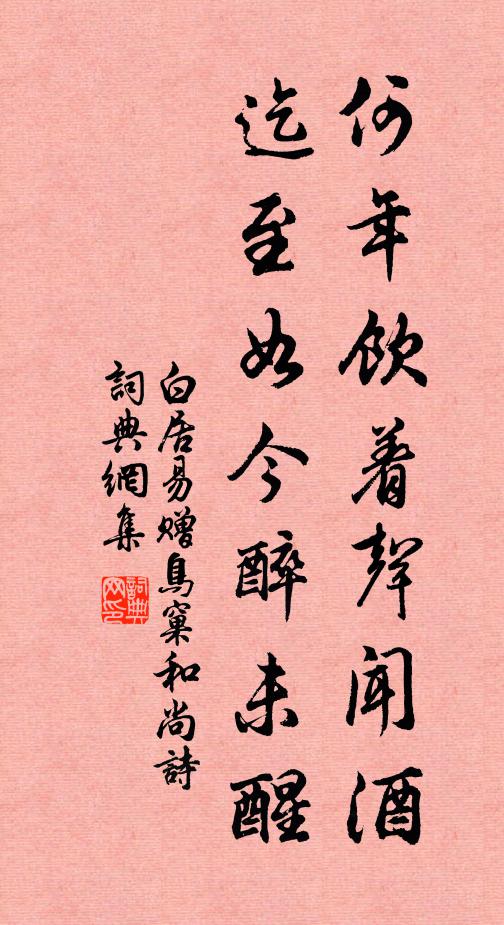 何年飲着聲聞酒
迄至如今醉未醒
白居易贈鳥窠和尚詩
詞典網集
詞典
网印